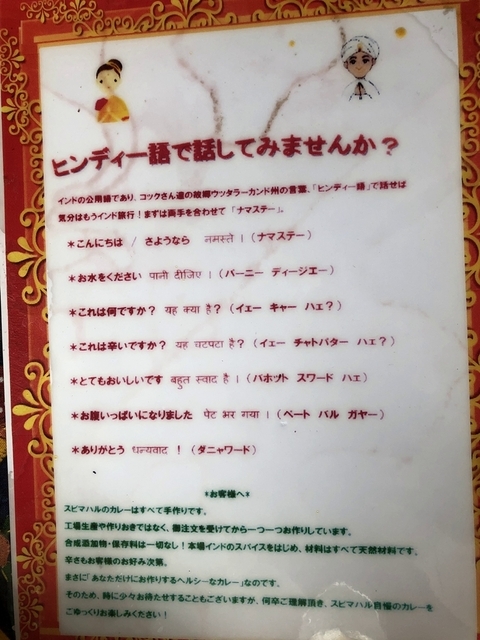 ヒンディー語で話してみませんか?
インドの公用語であり、コックさん達の故郷ウッタラーカンド州の言葉、「ヒンディー語」で話せば
気分はもうインド旅行!まずは両手を合わせて「ナマステー」。
*こんにちは / さようなら नमस्ते ! (ナマステー)
*お水をください पानी दीजिए ! (パーニー ディージエー)
*これは何ですか? यह क्या है? (イェー キャー ハェ?)
*これは辛いですか? यह चटपटा है? (イェー チャトパター ハェ?)
*とてもおいしいです बहुत स्वाद है । (バホット スワード ハェ)
*お腹いっぱいになりました पेट भर गया । (ペート バル ガヤー)
*ありがとう धन्यवाद ! (ダニャワード)
*お客様へ*
スビマハルのカレーはすべて手作りです。
工場生産や作りおきではなく、御注文を受けてから一つ一つお作りしています。
合成添加物・保存料は一切なし!本場インドのスパイスをはじめ、材料はすべて天然材料です。
辛さもお客様のお好み次第。
まさに「あなただけにお作りするヘルシーなカレー」なのです。
そのため、時に少々お待たせすることもございますが、何卒ご理解頂き、スビマハル自慢のカレーを
ごゆっくりお楽しみください!